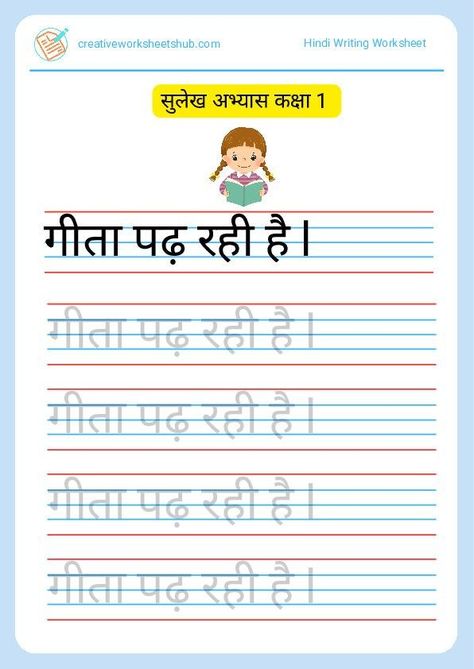 creativeworksheetshub.com
Hindi Writing Worksheet
सुलेख अभ्यास कक्षा 1
गीता पढ़ रही है।
गीता पढ़ रही है।
गीता पढ़ रही है।
गीता पढ़ रही है।
गीता पढ़ रही है।